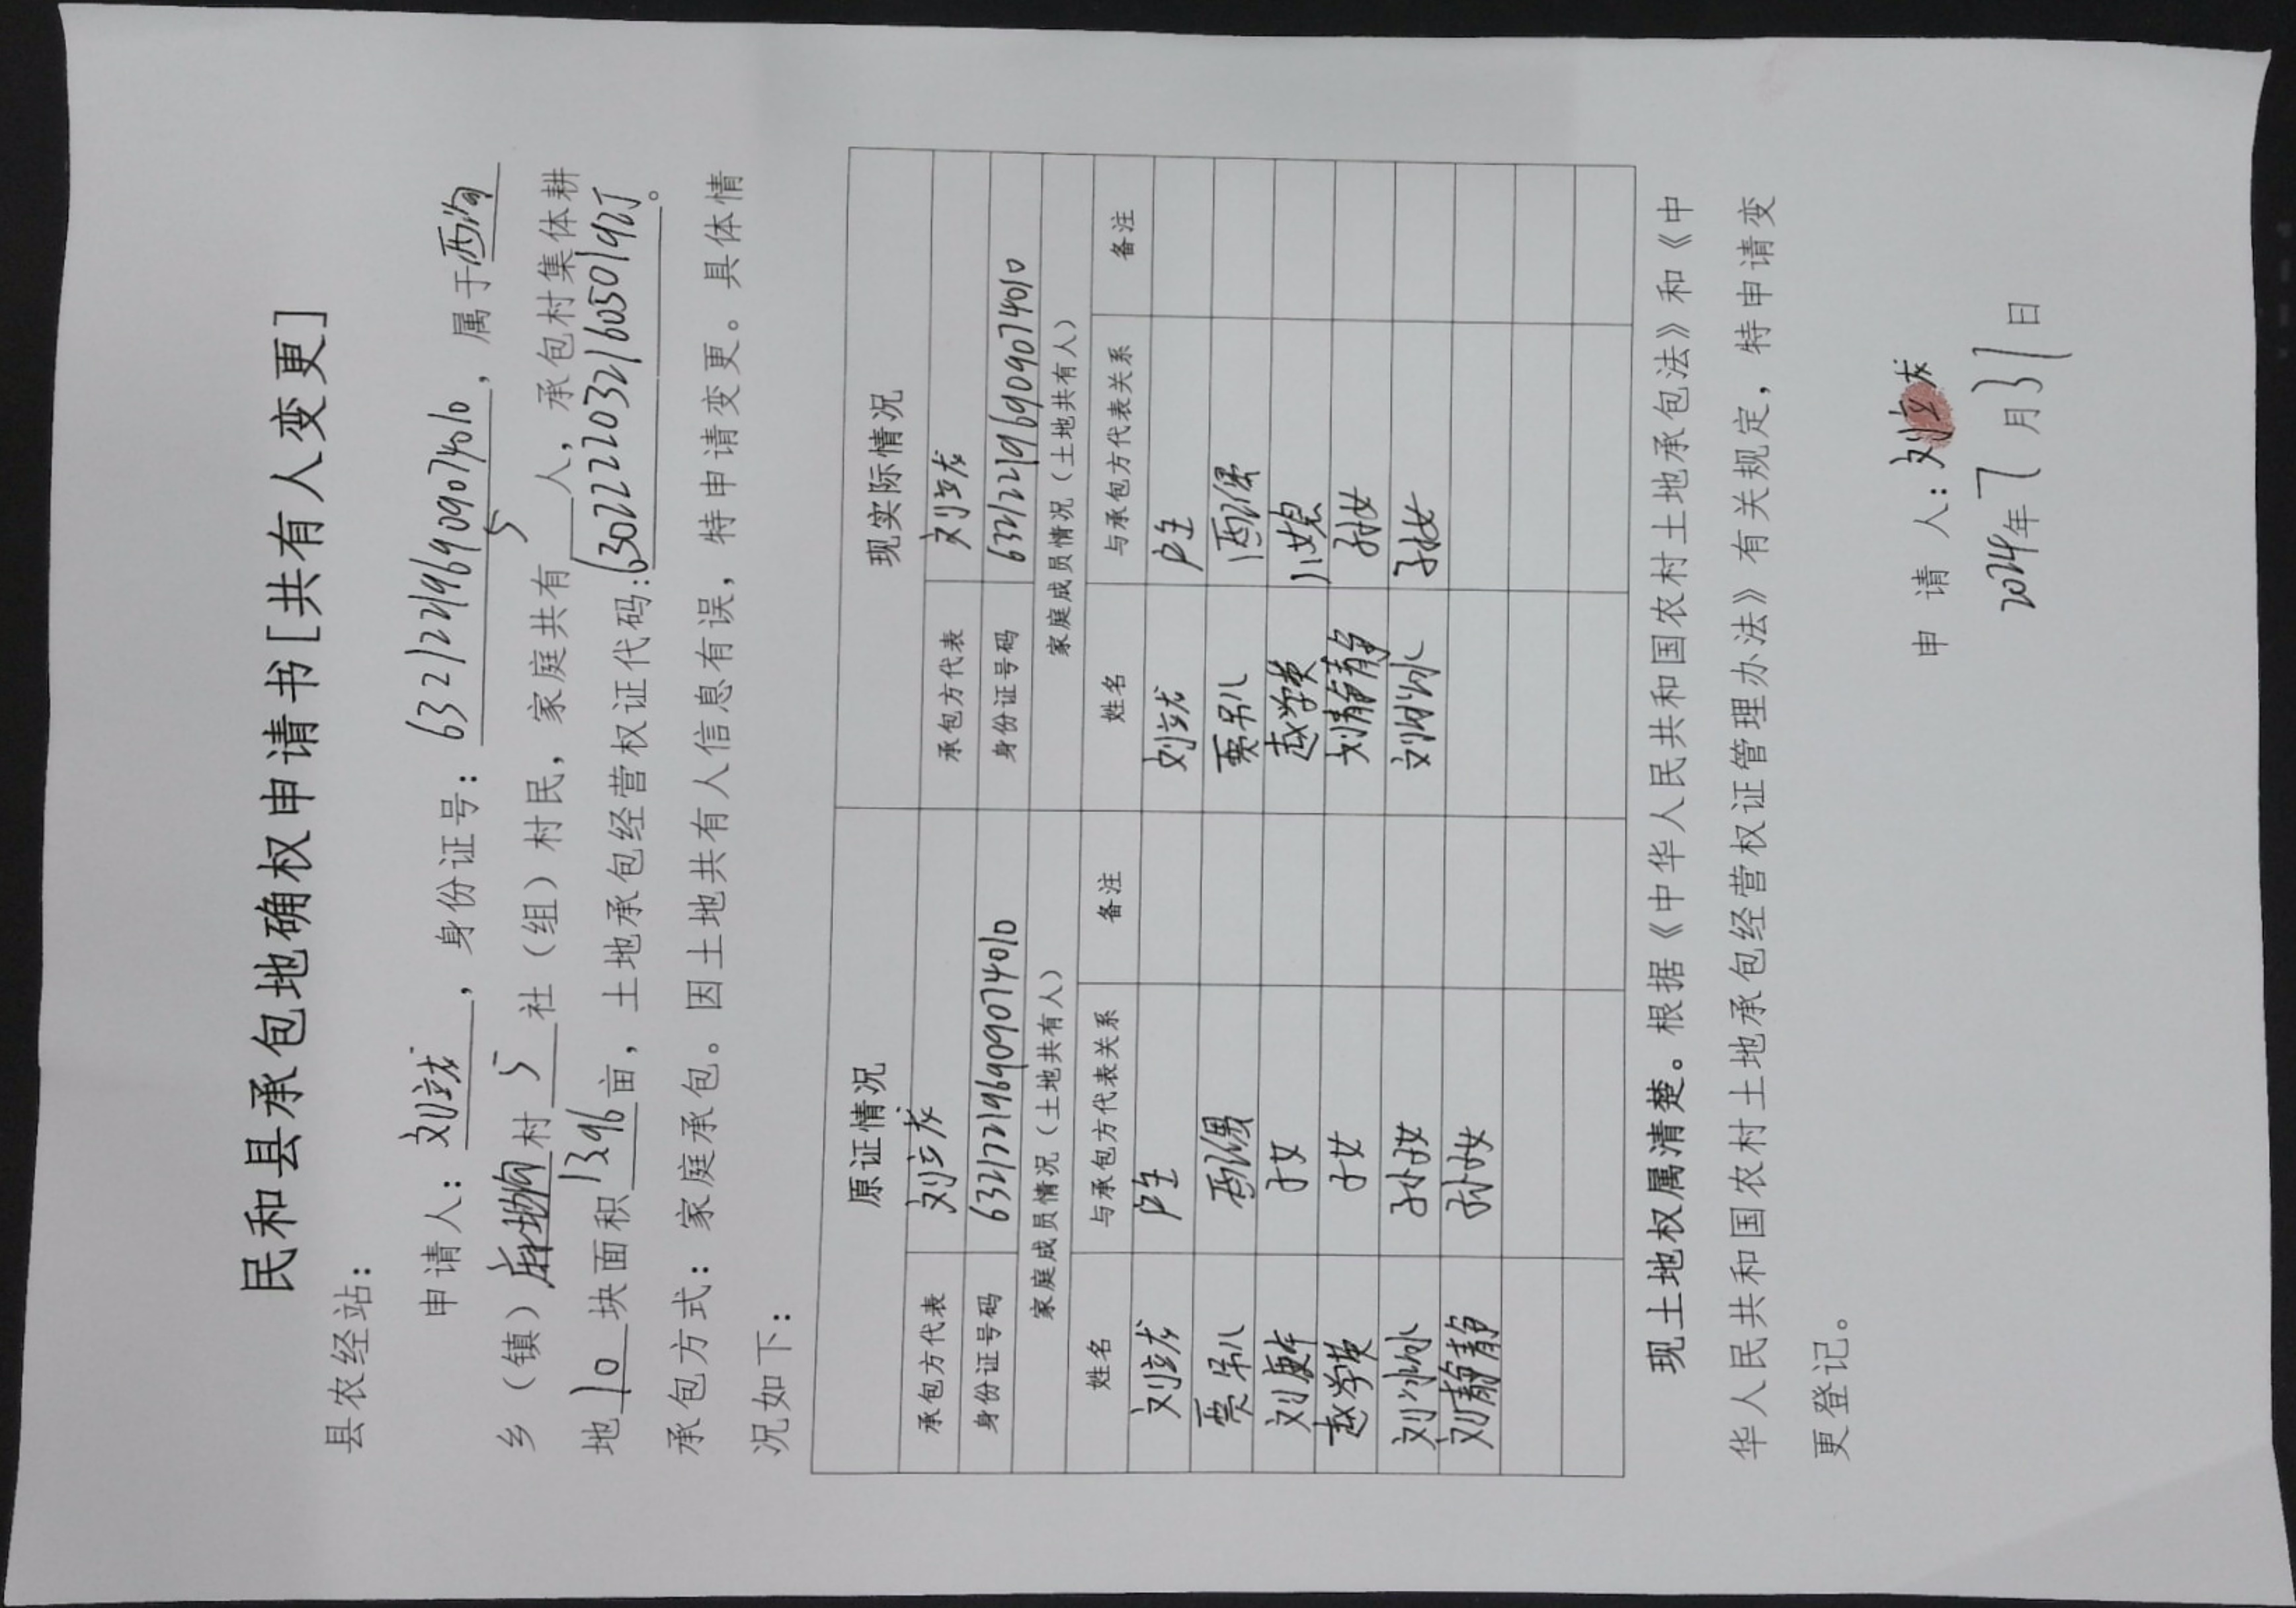 民和县承包地确权申请书[共有人变更]
县农经站：
申请人：刘立龙，身份证号：632122196909074010，属于西沟
乡（镇）麻地沟村5社（组）村民，家庭共有5人，承包村集体耕
地10块面积13.96亩，土地承包经营权证代码：630222203216050192J。
承包方式：家庭承包。因土地共有人信息有误，特申请变更。具体情
况如下：
原证情况 现实际情况
承包方代表 刘立龙 承包方代表 刘立龙
身份证号码 632122196909074010 身份证号码 632122196909074010
家庭成员情况（土地共有人） 家庭成员情况（土地共有人）
姓名 与承包方代表关系 备注 姓名 与承包方代表关系 备注
刘立龙 户主 刘立龙 户主
贾吊儿 配偶 贾吊儿 配偶
刘 子女 赵学英 儿媳
赵学英 子女 刘静静 孙女
刘冰冰 孙子女 刘冰冰 孙女
刘静静 孙子女
现土地权属清楚。根据《中华人民共和国农村土地承包法》和《中
华人民共和国农村土地承包经营权证管理办法》有关规定，特申请变
更登记。
申 请 人：刘立龙
2024年7月31日